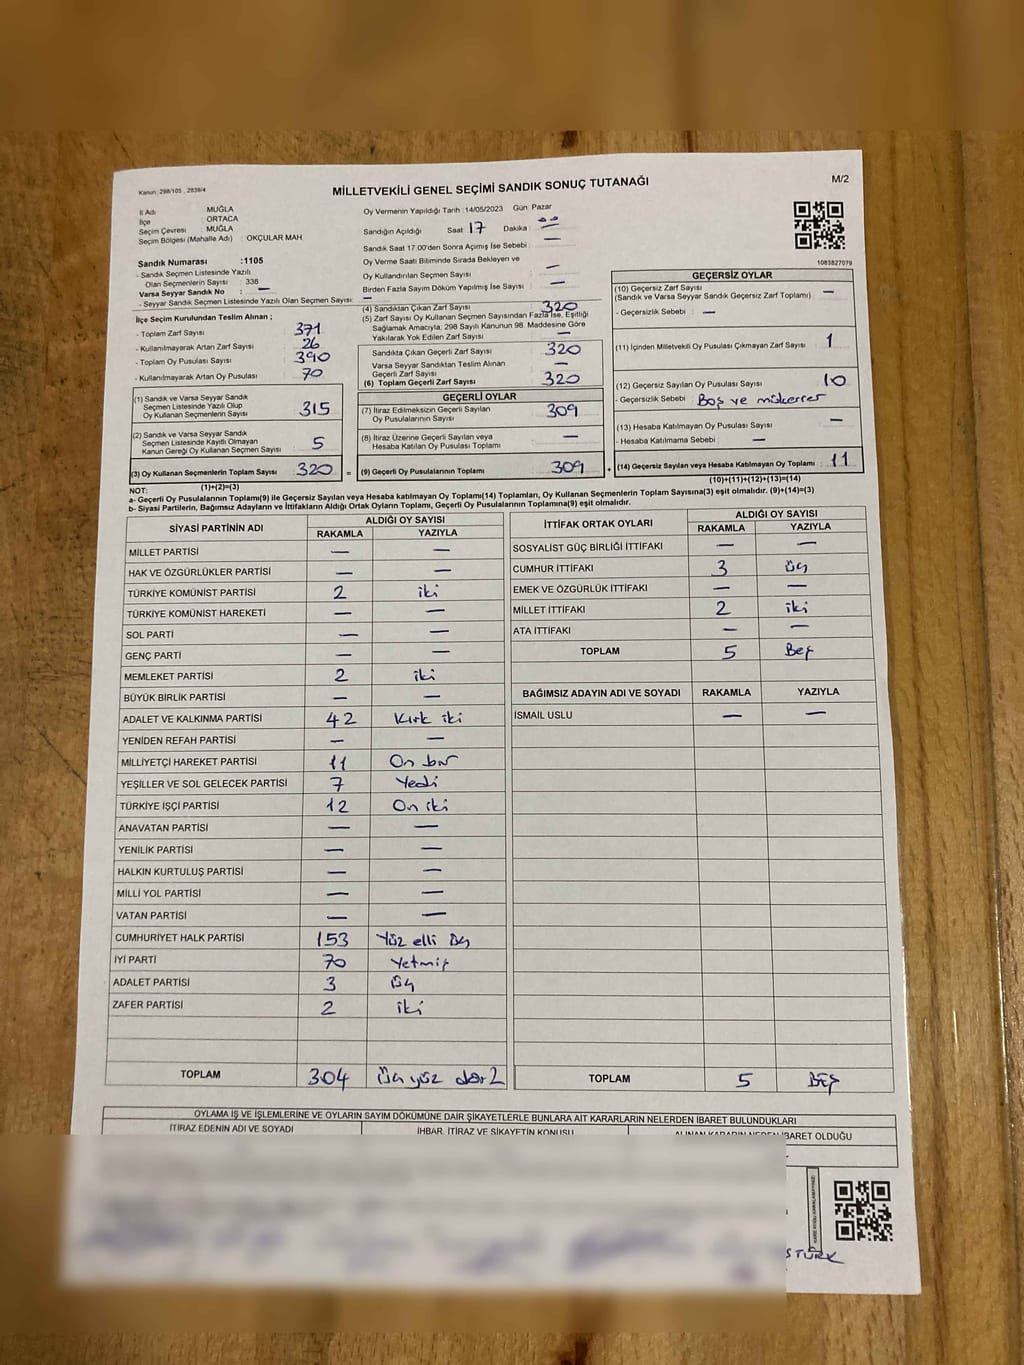 Kanun: 298/105 , 2839/4
MİLLETVEKİLİ GENEL SEÇİMİ SANDIK SONUÇ TUTANAĞI
M/2
İl Adı : MUĞLA
İlçe : ORTACA
Seçim Çevresi : MUĞLA
Seçim Bölgesi (Mahalle Adı) : OKÇULAR MAH
Sandık Numarası :1105
- Sandık Seçmen Listesinde Yazılı
Olan Seçmenlerin Sayısı : 338
Varsa Seyyar Sandık No : —
- Seyyar Sandık Seçmen Listesinde Yazılı Olan Seçmen Sayısı: —
Oy Vermenin Yapıldığı Tarih :14/05/2023 Gün: Pazar
Sandığın Açıldığı Saat 17 Dakika :
Sandık Saat 17.00'den Sonra Açılmış İse Sebebi : —
Oy Verme Saati Bitiminde Sırada Bekleyen ve
Oy Kullandırılan Seçmen Sayısı : —
Birden Fazla Sayım Döküm Yapılmış İse Sayısı : —
1083827079
İlçe Seçim Kurulundan Teslim Alınan ;
- Toplam Zarf Sayısı : 371
- Kullanılmayarak Artan Zarf Sayısı : 26
- Toplam Oy Pusulası Sayısı : 390
- Kullanılmayarak Artan Oy Pusulası : 70
(1) Sandık ve Varsa Seyyar Sandık
Seçmen Listesinde Yazılı Olup
Oy Kullanan Seçmenlerin Sayısı : 315
(2) Sandık ve Varsa Seyyar Sandık
Seçmen Listesinde Kayıtlı Olmayan
Kanun Gereği Oy Kullanan Seçmen Sayısı : 5
(3) Oy Kullanan Seçmenlerin Toplam Sayısı : 320 =
(1)+(2)=(3)
(4) Sandıktan Çıkan Zarf Sayısı : 320
(5) Zarf Sayısı Oy Kullanan Seçmen Sayısından Fazla İse, Eşitliği
Sağlamak Amacıyla, 298 Sayılı Kanunun 98. Maddesine Göre
Yakılarak Yok Edilen Zarf Sayısı : —
Sandıkta Çıkan Geçerli Zarf Sayısı : 320
Varsa Seyyar Sandıktan Teslim Alınan
Geçerli Zarf Sayısı : —
(6) Toplam Geçerli Zarf Sayısı : 320
GEÇERLİ OYLAR
(7) İtiraz Edilmeksizin Geçerli Sayılan
Oy Pusulasının Sayısı : 309
(8) İtiraz Üzerine Geçerli Sayılan veya
Hesaba Katılan Oy Pusulası Toplamı : —
(9) Geçerli Oy Pusulalarının Toplamı : 309 +
GEÇERSİZ OYLAR
(10) Geçersiz Zarf Sayısı : —
(Sandık ve Varsa Seyyar Sandık Geçersiz Zarf Toplamı)
- Geçersizlik Sebebi : —
(11) İçinden Milletvekili Oy Pusulası Çıkmayan Zarf Sayısı : 1
(12) Geçersiz Sayılan Oy Pusulası Sayısı : 10
- Geçersizlik Sebebi : Boş ve mükerrer
(13) Hesaba Katılmayan Oy Pusulası Sayısı : —
- Hesaba Katılmama Sebebi : —
(14) Geçersiz Sayılan veya Hesaba Katılmayan Oy Toplamı : 11
(10)+(11)+(12)+(13)=(14)
NOT:
a- Geçerli Oy Pusulalarının Toplamı(9) ile Geçersiz Sayılan veya Hesaba katılmayan Oy Toplamı(14) Toplamları, Oy Kullanan Seçmenlerin Toplam Sayısına(3) eşit olmalıdır. (9)+(14)=(3)
b- Siyasi Partilerin, Bağımsız Adayların ve İttifakların Aldığı Ortak Oyların Toplamı, Geçerli Oy Pusulalarının Toplamına(9) eşit olmalıdır.
SİYASİ PARTİNİN ADI ALDIĞI OY SAYISI
RAKAMLA YAZIYLA
MİLLET PARTİSİ — —
HAK VE ÖZGÜRLÜKLER PARTİSİ — —
TÜRKİYE KOMÜNİST PARTİSİ 2 iki
TÜRKİYE KOMÜNİST HAREKETİ — —
SOL PARTİ — —
GENÇ PARTİ — —
MEMLEKET PARTİSİ 2 iki
BÜYÜK BİRLİK PARTİSİ — —
ADALET VE KALKINMA PARTİSİ 42 Kırk iki
YENİDEN REFAH PARTİSİ — —
MİLLİYETÇİ HAREKET PARTİSİ 11 On bir
YEŞİLLER VE SOL GELECEK PARTİSİ 7 Yedi
TÜRKİYE İŞÇİ PARTİSİ 12 On iki
ANAVATAN PARTİSİ — —
YENİLİK PARTİSİ — —
HALKIN KURTULUŞ PARTİSİ — —
MİLLİ YOL PARTİSİ — —
VATAN PARTİSİ — —
CUMHURİYET HALK PARTİSİ 153 Yüz elli üç
İYİ PARTİ 70 Yetmiş
ADALET PARTİSİ 3 üç
ZAFER PARTİSİ 2 iki
TOPLAM 304 Üç yüz dört
İTTİFAK ORTAK OYLARI ALDIĞI OY SAYISI
RAKAMLA YAZIYLA
SOSYALİST GÜÇ BİRLİĞİ İTTİFAKI — —
CUMHUR İTTİFAKI 3 üç
EMEK VE ÖZGÜRLÜK İTTİFAKI — —
MİLLET İTTİFAKI 2 iki
ATA İTTİFAKI — —
TOPLAM 5 Beş
BAĞIMSIZ ADAYIN ADI VE SOYADI RAKAMLA YAZIYLA
İSMAİL USLU — —
TOPLAM 5 Beş
OYLAMA İŞ VE İŞLEMLERİNE VE OYLARIN SAYIM DÖKÜMÜNE DAİR ŞİKAYETLERLE BUNLARA AİT KARARLARIN NELERDEN İBARET BULUNDUKLARI
İTİRAZ EDENİN ADI VE SOYADI İHBAR, İTİRAZ VE ŞİKAYETİN KONUSU ALINAN KARARIN NEDEN İBARET OLDUĞU